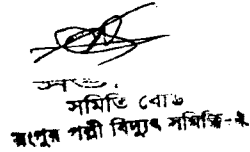 সভা.
সমিতি বোর্ড
রংপুর পল্লী বিদ্যুৎ সমিতি-২